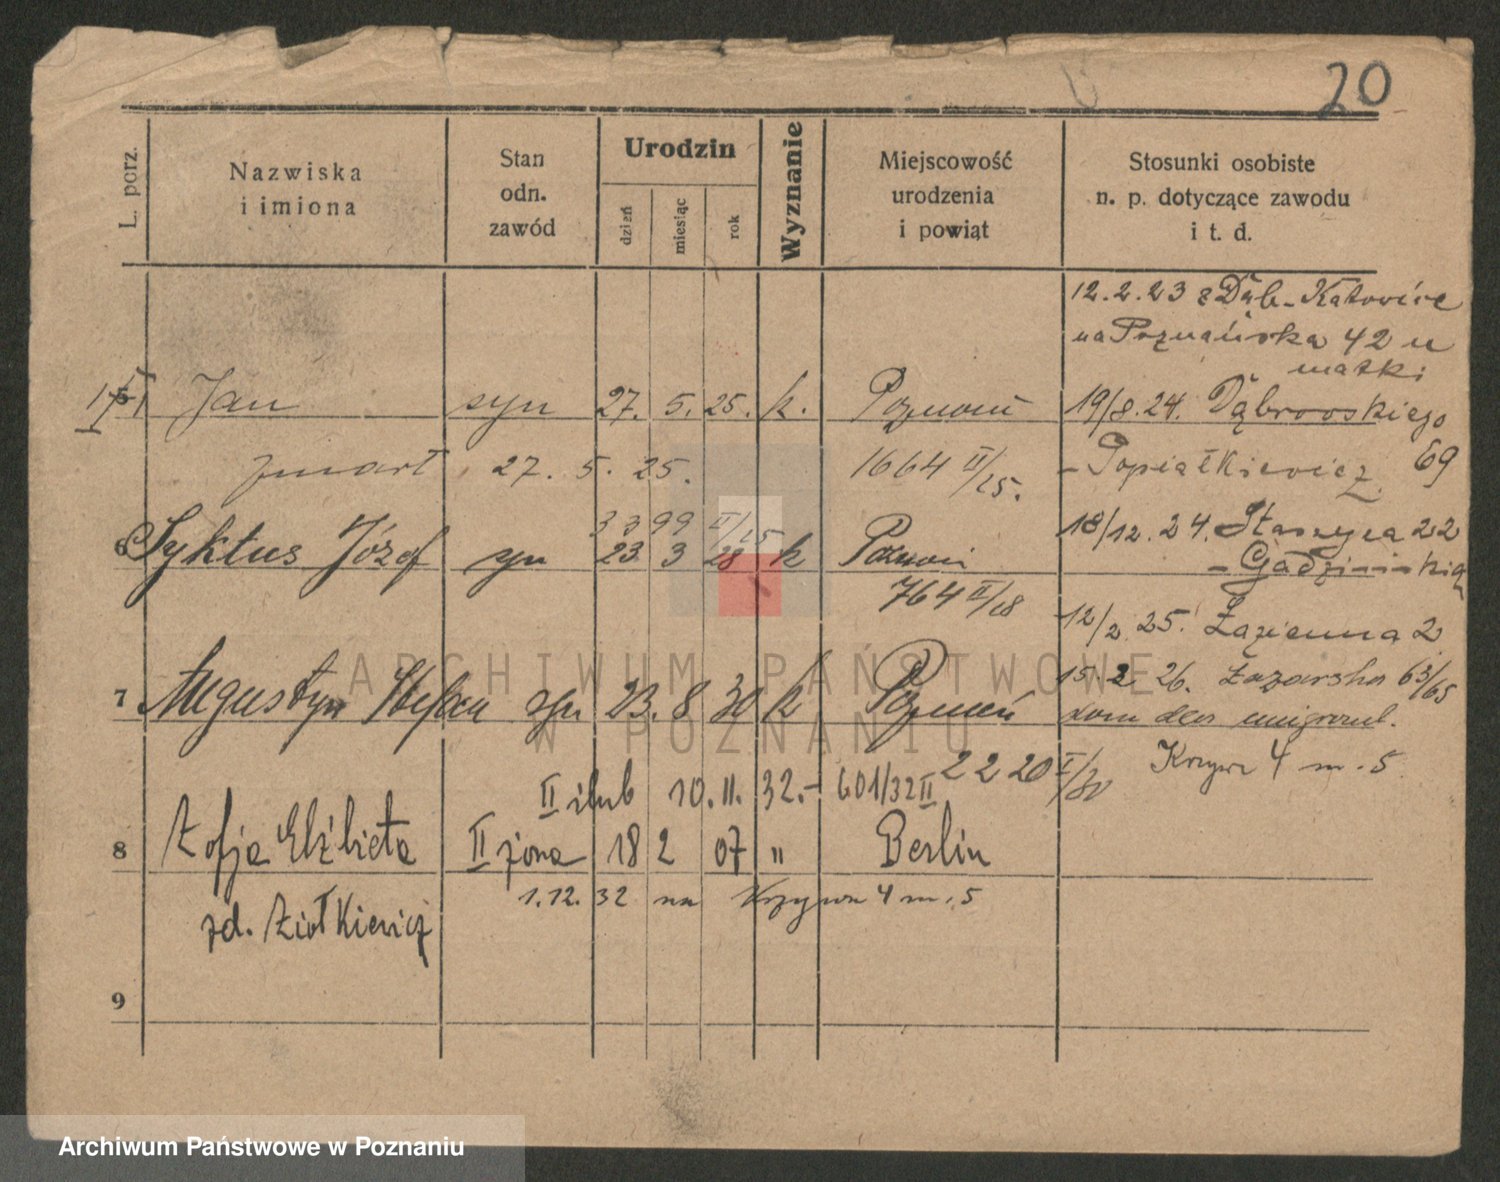 20
L. porz.
Nazwiska
i imiona
Stan
odn.
zawód
Urodzin
dzień
miesiąc
rok
Wyznanie
Miejscowość
urodzenia
i powiąt
Stosunki osobiste
n. p. dotyczące zawodu
i t. d.
12.2.23 z Dąb-Katowice
na Poznańska 42 u
matki
5 Jan syn 27. 5. 25. k. Poznań 19/8.24. Dąbrowskiego
zmarł 27. 5. 25. 1664 II/25. - Popiałkiewicz 69
3 3 99 II/25
6 Syktus Józef syn 23 3 28 k Poznań 18/12.24. Staszyca 22
- Gadzińskią
764 II/28
12/2 25. Łazienna 2
15.2 26. Łazarska 63/65
7 Augustyn Stefan syn 23. 8 30 k Poznań dom dla emigrant.
2220 I/30 Krzywa 4 m. 5
II ślub 10. 11. 32.- 601/32 II
8 Zofja Elżbieta II żona 18 2 07 " Berlin
1.12. 32 na Krzywa 4 m. 5
zd. Ziółkiewicz
9
ARCHIWUM PAŃSTWOWE
W POZNANIU
Archiwum Państwowe w Poznaniu